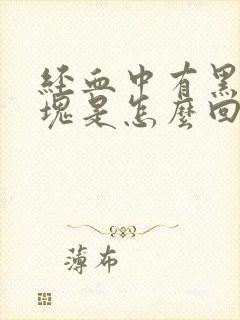 经血中有黑
塊是怎麼回
薄布